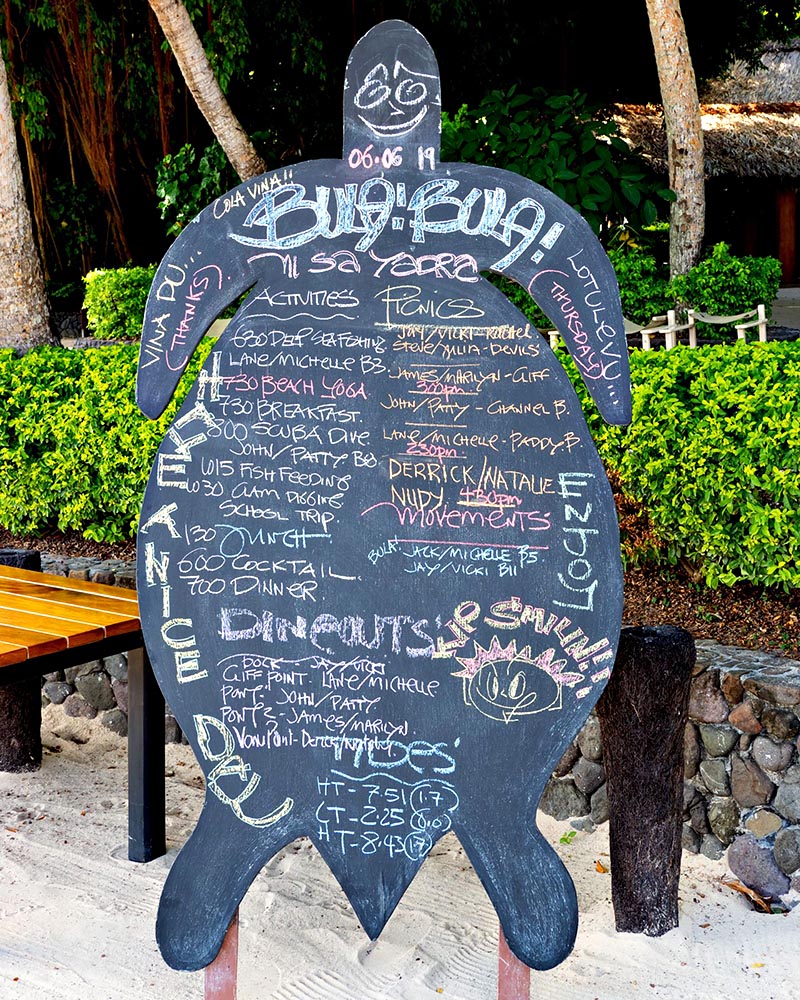 06.06 19
COLA VINA!!
BULA! BULA!
NI SA YADRA
VINA DU...
(THANKS)
LOTULEVU...
(THURSDAY)
ACTIVITIES
630 DEEP SEA FISHING
LANE/MICHELLE B3
730 BEACH YOGA
730 BREAKFAST.
800 SCUBA DIVE
JOHN/PATTY B8
1015 FISH FEEDING
1030 CLAM DIGGING
SCHOOL TRIP.
130 LUNCH
600 COCKTAIL
700 DINNER.
PICNICS
JAY/VICKI - RACHEL
STEVE/JULIA - DEVILS
JAMES/MARILYN - CLIFF
300pm
JOHN/PATTY - CHANNEL B.
LANE/MICHELLE - PADDY B.
230pm
DERRICK/NATALIE
NUDY 430pm
MOVEMENTS
BULA: JACK/MICHELLE B5
JAY/VICKI B11
HAVE A NICE DAY
ENJOY
KEEP SMILIN!!!
DINEOUTS
DOCK - JAY/VICKI
CLIFF POINT - LANE/MICHELLE
PONT 1 - JOHN/PATTY
PONT 2 - JAMES/MARILYN.
POINT - DEREK/NATALIE
TIDES
HT - 7.51 (1.7)
LT - 2.25 (0.0)
HT - 8.43 (1.7)